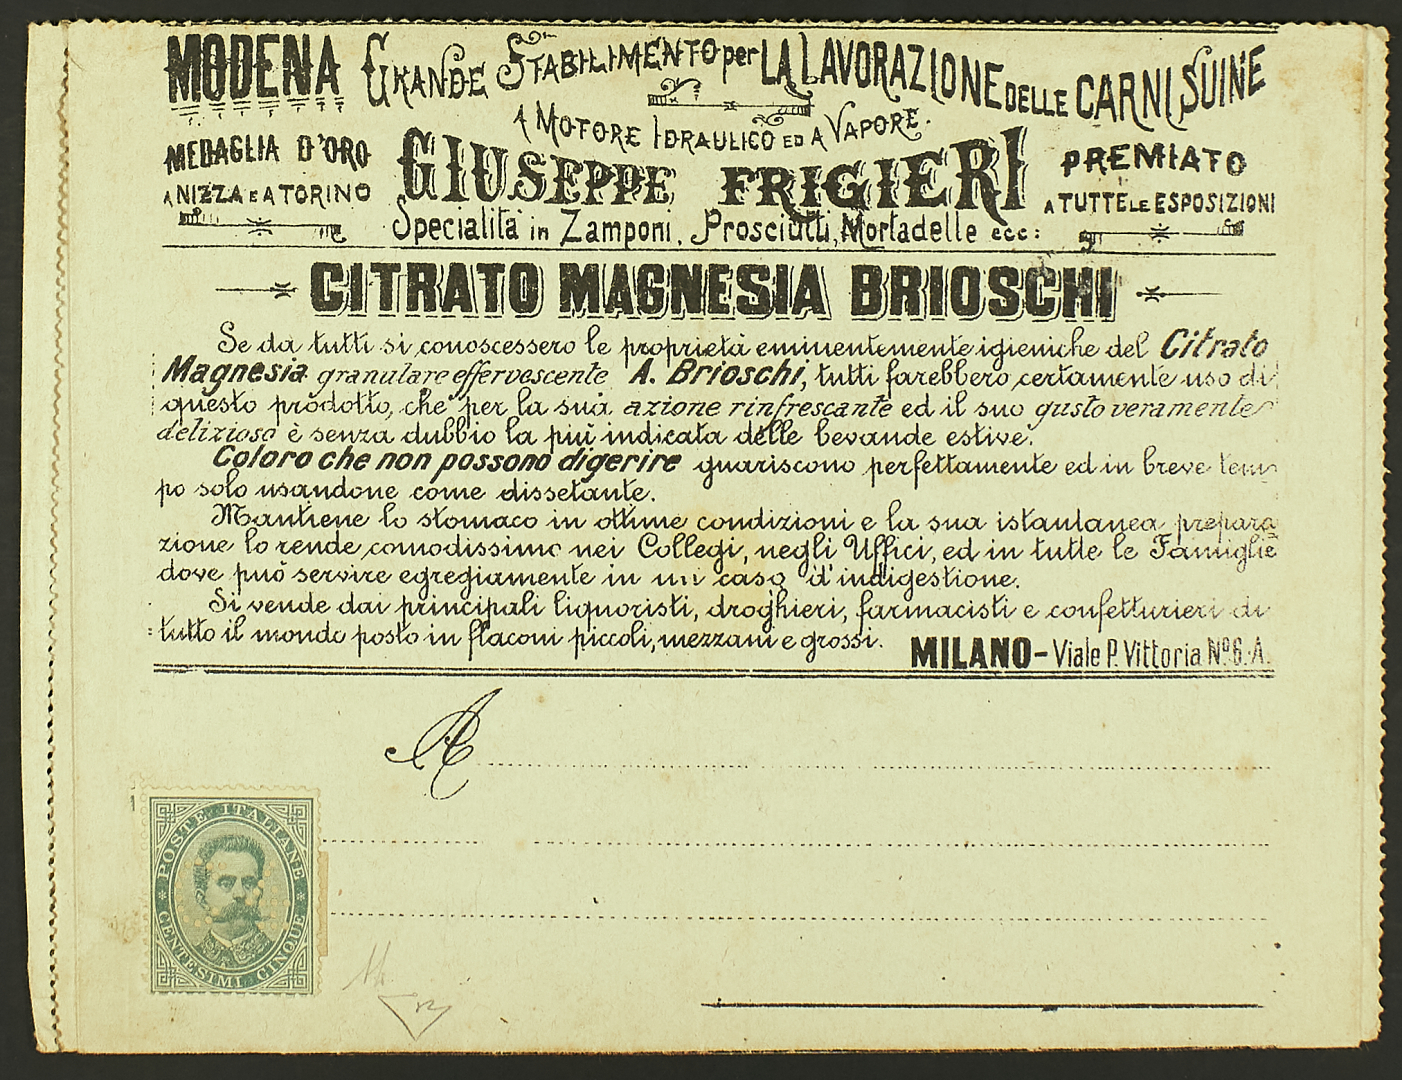 MODENA GRANDE STABILIMENTO per LA LAVORAZIONE DELLE CARNI SUINE
A MOTORE IDRAULICO ED A VAPORE.
MEDAGLIA D'ORO
A NIZZA E A TORINO
GIUSEPPE FRIGIERI
PREMIATO
A TUTTE LE ESPOSIZIONI
Specialità in Zamponi, Prosciutti, Mortadelle ecc:
CITRATO MAGNESIA BRIOSCHI
Se da tutti si conoscessero le proprietà eminentemente igieniche del Citrato
Magnesia granulare effervescente A. Brioschi, tutti farebbero certamente uso di
questo prodotto, che per la sua azione rinfrescante ed il suo gusto veramente
delizioso è senza dubbio la più indicata delle bevande estive.
Coloro che non possono digerire guariscono perfettamente ed in breve tem
po solo usandone come dissetante.
Mantiene lo stomaco in ottime condizioni e la sua istantanea prepara
zione lo rende comodissimo nei Collegi, negli Uffici, ed in tutte le Famiglie
dove può servire egregiamente in un caso d'indigestione.
Si vende dai principali liquoristi, droghieri, farmacisti e confetturieri di
tutto il mondo posto in flaconi piccoli, mezzani e grossi.
MILANO - Viale P. Vittoria Nº 6. A.
A
POSTE ITALIANE
CENTESIMI CINQUE